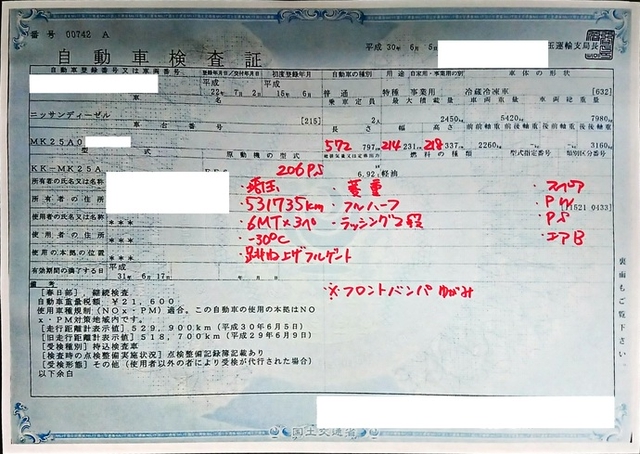 番号 00742 A
平成 30年 6月 5日
玉運輸支局長
自動車検査証
自動車登録番号又は車両番号 登録年月日/交付年月日 初度登録年月 自動車の種別 用途 自家用・事業用の別 車体の形状
平成 22年 7月 2日 平成 15年 6月 普通 特種 事業用 冷蔵冷凍車 [632]
車名 乗車定員 最大積載量 車両重量 車両総重量
ニッサンディーゼル [215] 2人 2450kg 5420kg 7980kg
車台番号 長さ 幅 高さ 前前軸重 前後軸重 後前軸重 後後軸重
MK25A0 572 797 214 231 218 337 2260kg 3160kg
型式 原動機の型式 燃料の種類 型式指定番号 類別区分番号
KK-MK25A 206PS 6.92 軽油
所有者の氏名又は名称
所有者の住所 531735km フルハーフ P W
使用者の氏名又は名称 *** 6MT×3ペ ラッシング2段 PS
使用者の住所 *** -30℃ エアB
使用の本拠の位置 *** 跳ね上げフルゲート
有効期間の満了する日 平成 31年 6月17日
備考
※フロントバンパゆがみ
[春日部] 継続検査
自動車重量税額 ¥21,600
使用車種規制(NOx・PM)適合。この自動車の使用の本拠はNO
x・PM対策地域内です。
[走行距離計表示値] 529,900km (平成30年6月5日)
[旧走行距離計表示値] 518,700km (平成29年6月9日)
[受検種別] 持込検査車
[検査時の点検整備実施状況] 点検整備記録簿記載あり
[受検形態] その他 (使用者以外の者により受検が代行された場合)
以下余白
裏面もご覧下さい
国土交通省